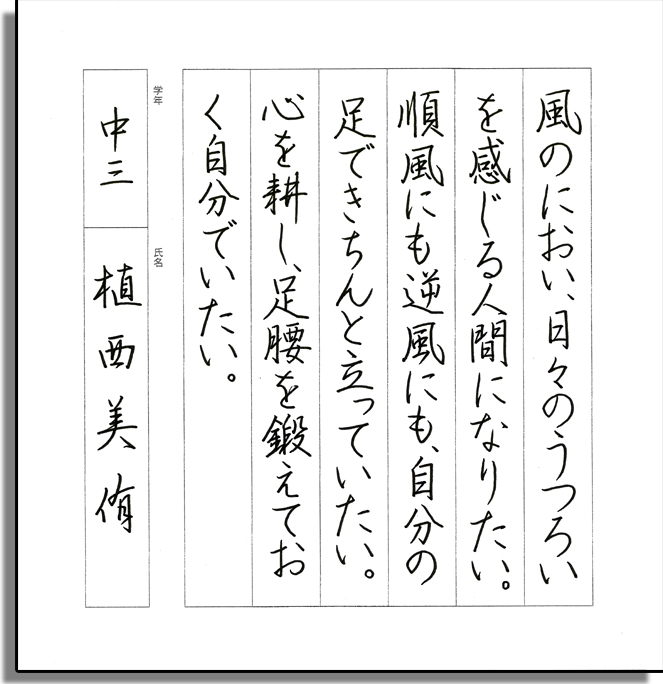 風のにおい、日々のうつろい
を感じる人間になりたい。
順風にも逆風にも、自分の
足できちんと立っていたい。
心を耕し、足腰を鍛えてお
く自分でいたい。
学年
中三
氏名
植西美侑